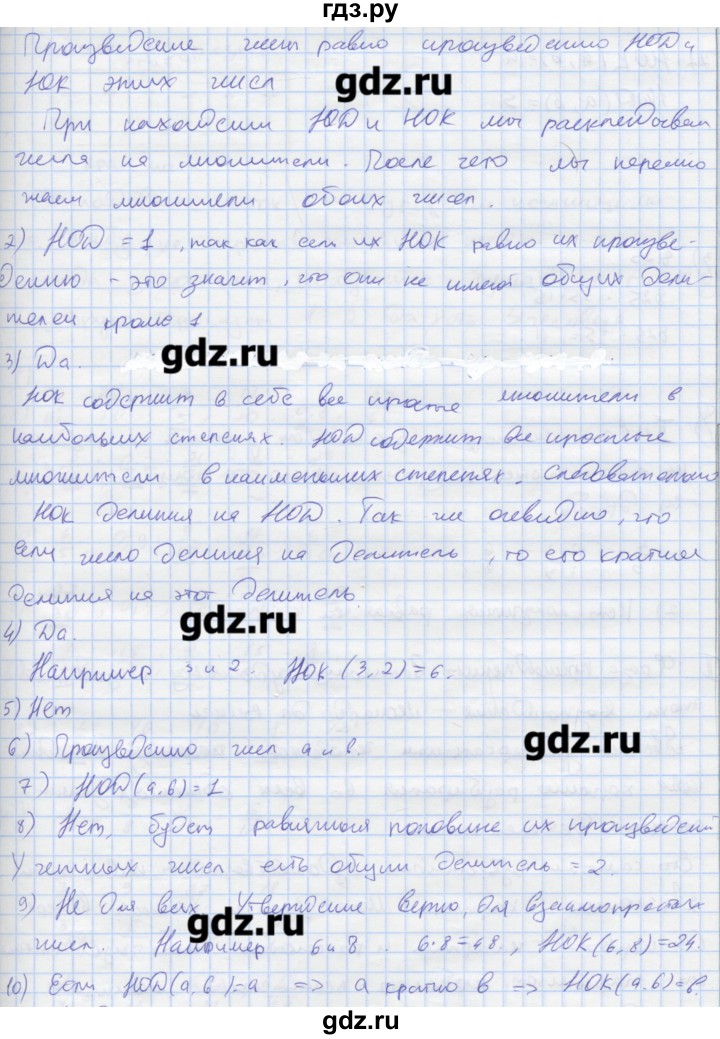 гдз.ру
Произведение чисел равно произведению НОД и
НОК этих чисел
gdz.ru
При нахождении НОД и НОК мы раскладываем
числа на множители. После чего мы перемно
жаем множители обоих чисел.
2) НОД = 1, так как если их НОК равно их произве-
дению - это значит, что они не имеют общих дели-
телей кроме 1
3) Да.
gdz.ru
НОК содержит в себе все простые множители в
наибольших степенях. НОД содержит все простые
множители в наименьших степенях. Следовательно
НОК делится на НОД. Так же очевидно, что
если число делится на делитель, то его кратное
делится на этот делитель
4) Да.
gdz.ru
Например 3 и 2. НОК (3,2)=6.
5) Нет
6) Произведению чисел a и b.
gdz.ru
7) НОД(a,b)=1
8) Нет, будет равняться половине их произведений
У четных чисел есть общий делитель = 2.
9) Не для всех. Утверждение верно, для взаимопростых
gdz.ru
чисел. Например 6 и 8. 6·8=48, НОК(6,8)=24.
10) Если НОД(a,b)=a => a кратно b => НОК(a,b)=b.
gdz.ru